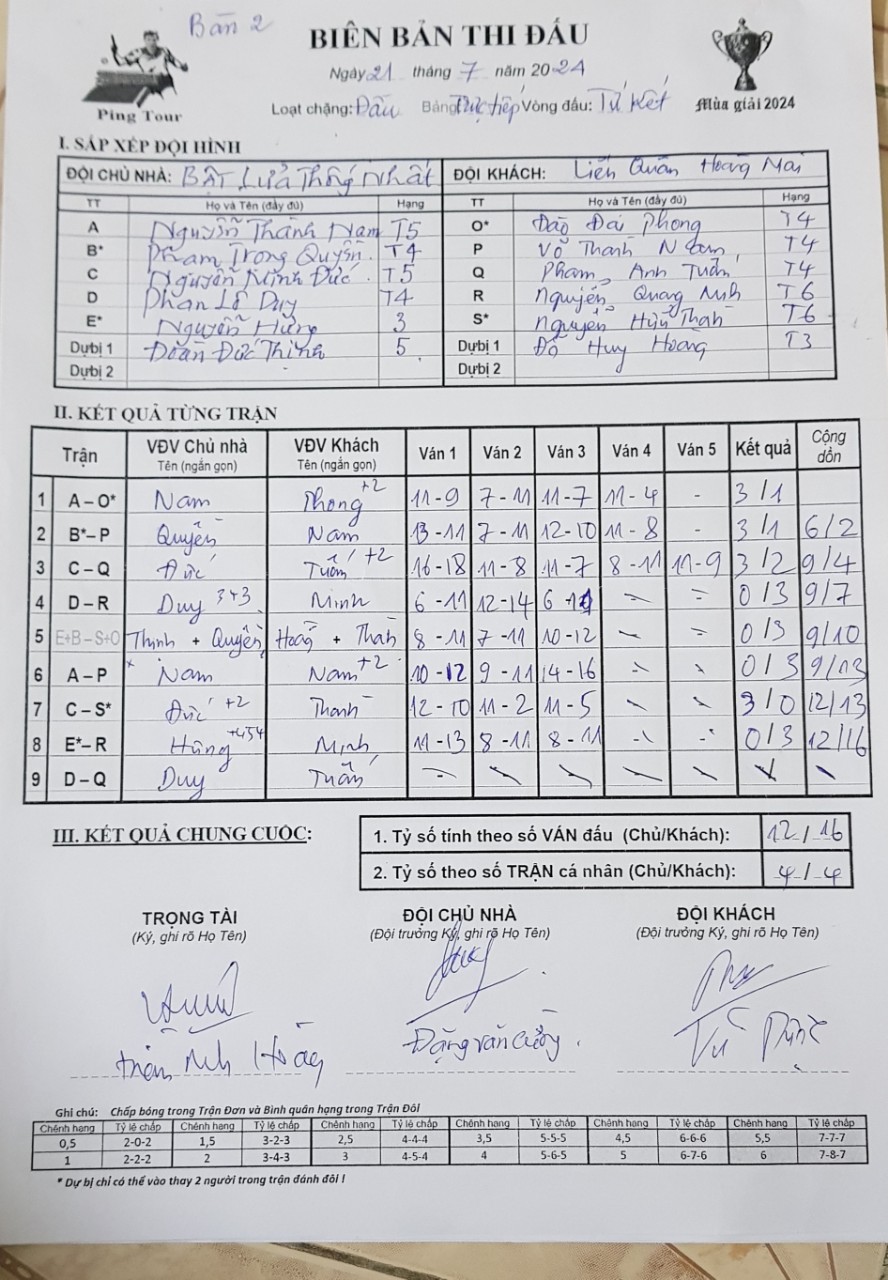 Bàn 2
BIÊN BẢN THI ĐẤU
Ngày 21 tháng 7 năm 2024
Ping Tour
Loạt chặng: Đấu Bảng: Trực tiếp Vòng đấu: Tứ kết
Mùa giải 2024
I. SẮP XẾP ĐỘI HÌNH
ĐỘI CHỦ NHÀ: BẬT Lửa Thống Nhất ĐỘI KHÁCH: Liên Quân Hoàng Mai
TT Họ và Tên (đầy đủ) Hạng TT Họ và Tên (đầy đủ) Hạng
A Nguyễn Thành Nam T5 O* Đào Đại Phong T4
B* Phạm Trọng Quyền T4 P Võ Thành Nam T4
C Nguyễn Minh Đức T5 Q Phạm Anh Tuấn T4
D Phan Lê Duy T4 R Nguyễn Quang Minh T6
E* Nguyễn Hưng 3 S* Nguyễn Hữu Thanh T6
Dự bị 1 Đoàn Đức Thịnh 5 Dự bị 1 Đỗ Huy Hoàng T3
Dự bị 2 Dự bị 2
II. KẾT QUẢ TỪNG TRẬN
Trận VĐV Chủ nhà Tên (ngắn gọn) VĐV Khách Tên (ngắn gọn) Ván 1 Ván 2 Ván 3 Ván 4 Ván 5 Kết quả Cộng dồn
1 A – O* Nam Phong +2 11-9 7-11 11-7 11-4 - 3/1
2 B* – P Quyền Nam 13-11 7-11 12-10 11-8 - 3/1 6/2
3 C – Q Đức Tuấn +2 16-18 11-8 11-7 8-11 11-9 3/2 9/4
4 D – R Duy 3+3 Minh 6-11 12-14 6-11 - - 0/3 9/7
5 E+B – S+O Thịnh + Quyền Hoàng + Thanh 8-11 7-11 10-12 - - 0/3 9/10
6 A – P Nam Nam +2 10-12 9-11 14-16 - - 0/3 9/13
7 C – S* Đức +2 Thanh 12-10 11-2 11-5 - - 3/0 12/13
8 E* – R Hưng +454 Minh 11-13 8-11 8-11 - - 0/3 12/16
9 D – Q Duy Tuấn - - - - -
III. KẾT QUẢ CHUNG CUỘC:
1. Tỷ số tính theo số VÁN đấu (Chủ/Khách): 12/16
2. Tỷ số theo số TRẬN cá nhân (Chủ/Khách): 4/4
TRỌNG TÀI ĐỘI CHỦ NHÀ ĐỘI KHÁCH
(Ký, ghi rõ Họ Tên) (Đội trưởng Ký, ghi rõ Họ Tên) (Đội trưởng Ký, ghi rõ Họ Tên)
Đặng Văn Cường Vũ
Ghi chú: Chấp bóng trong Trận Đơn và Bình quân hạng trong Trận Đôi
Chênh hạng Tỷ lệ chấp Chênh hạng Tỷ lệ chấp Chênh hạng Tỷ lệ chấp Chênh hạng Tỷ lệ chấp Chênh hạng Tỷ lệ chấp Chênh hạng Tỷ lệ chấp
0,5 2-0-2 1,5 3-2-3 2,5 4-4-4 3,5 5-5-5 4,5 6-6-6 5,5 7-7-7
1 2-2-2 2 3-4-3 3 4-5-4 4 5-6-5 5 6-7-6 6 7-8-7
* Dự bị chỉ có thể vào thay 2 người trong trận đánh đôi !